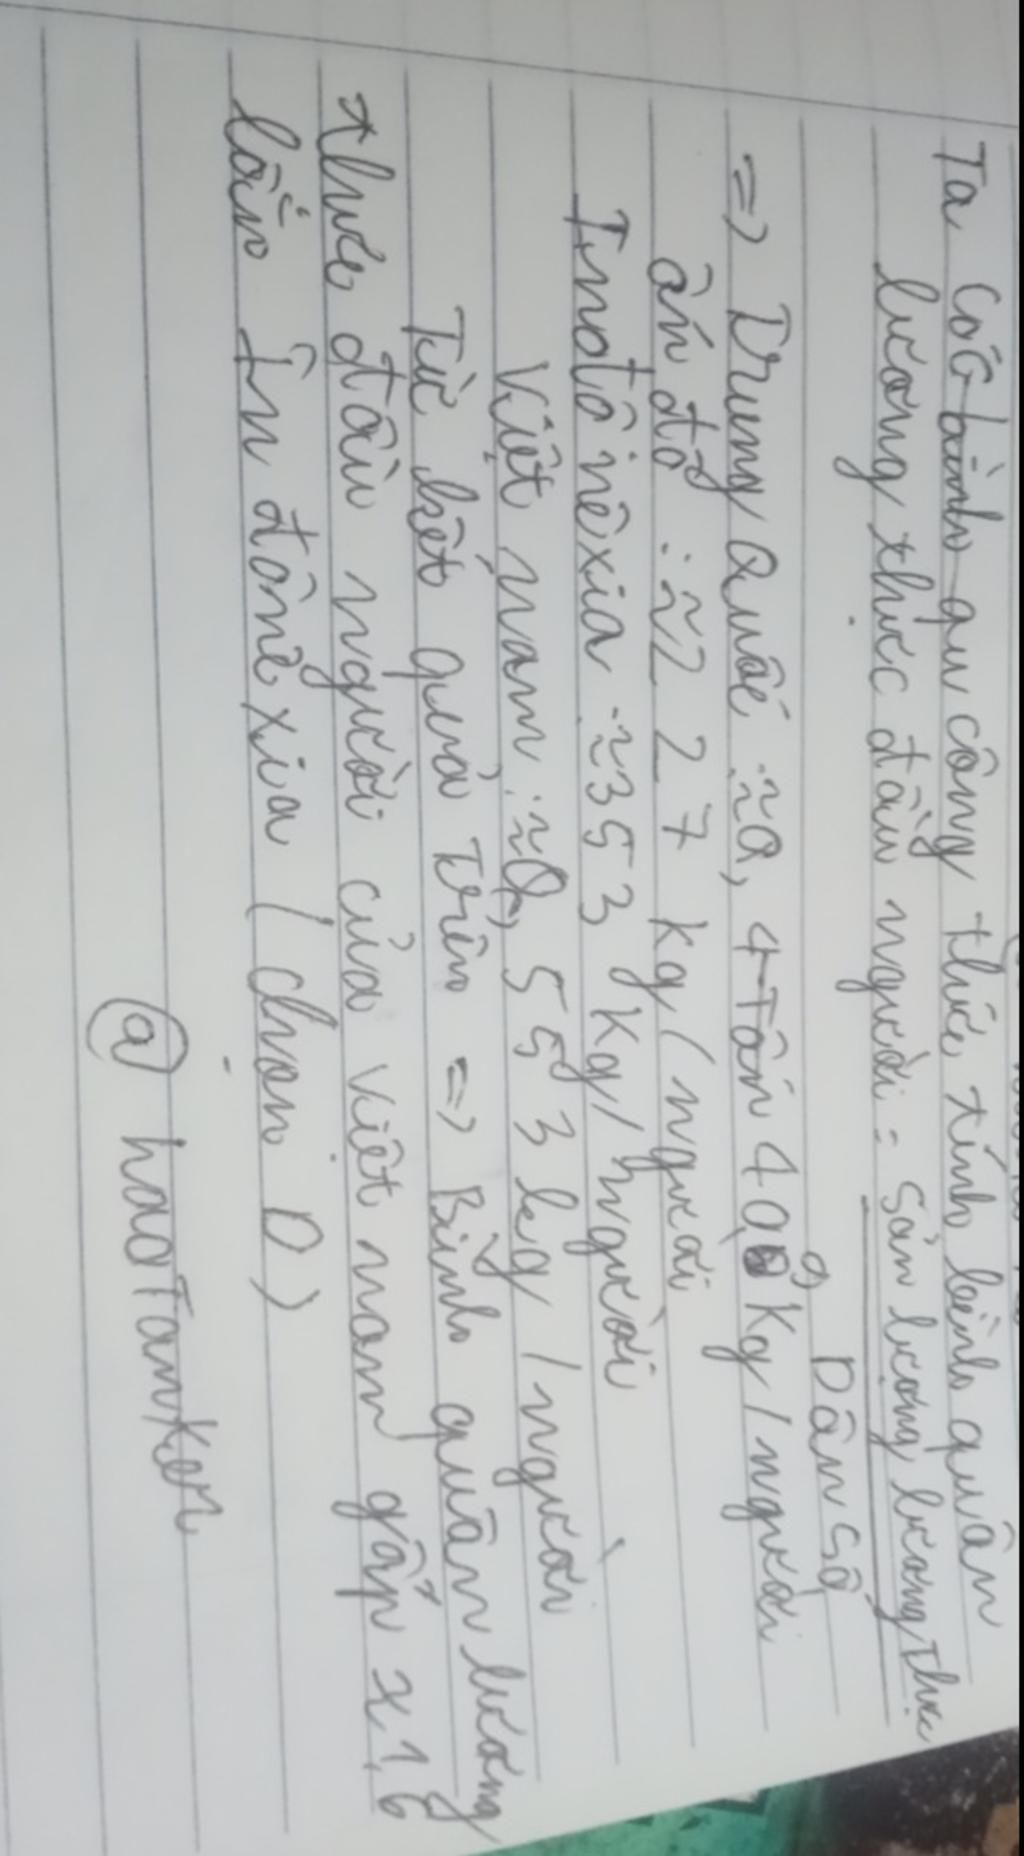 Ta có bình qu công thức tính bình quân
lương thực đầu người = Sản lượng lương thực
Dân số
=> Trung Quốc : ≈ 0,4 Tấn 400 Kg/người
ấn độ : ≈ 2 2 7 kg/người
Inđônêxia : ≈ 3 5 3 Kg/người
Việt nam : ≈ 0, 5 5 3 kg/người
Từ kết quả trên => Bình quân lương
thực đầu người của Việt nam gấp x 1,6
lần In đônêxia (chọn D)
@ haoTamKer